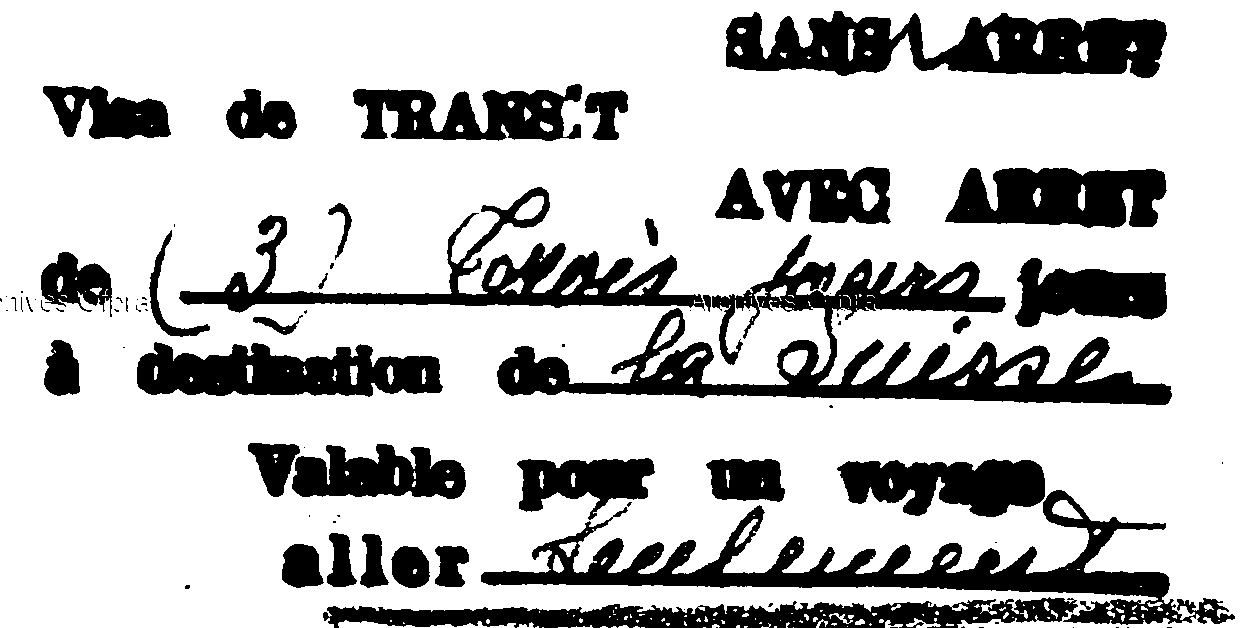 SANS ARRET
Visa de TRANSIT
AVEC ARRET
de (3) trois jours jours
à destination de la Suisse
Valable pour un voyage
aller seulement
Archives Ofpra